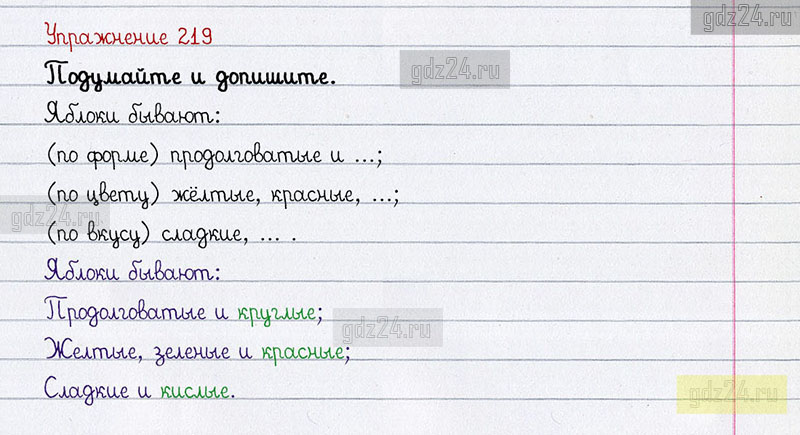 gdz24.ru
Упражнение 219
Подумайте и допишите.
gdz24.ru
Яблоки бывают:
(по форме) продолговатые и ...;
(по цвету) жёлтые, красные, ...;
gdz24.ru
(по вкусу) сладкие, ... .
Яблоки бывают:
Продолговатые и круглые;
gdz24.ru
Желтые, зеленые и красные;
Сладкие и кислые.
gdz24.ru